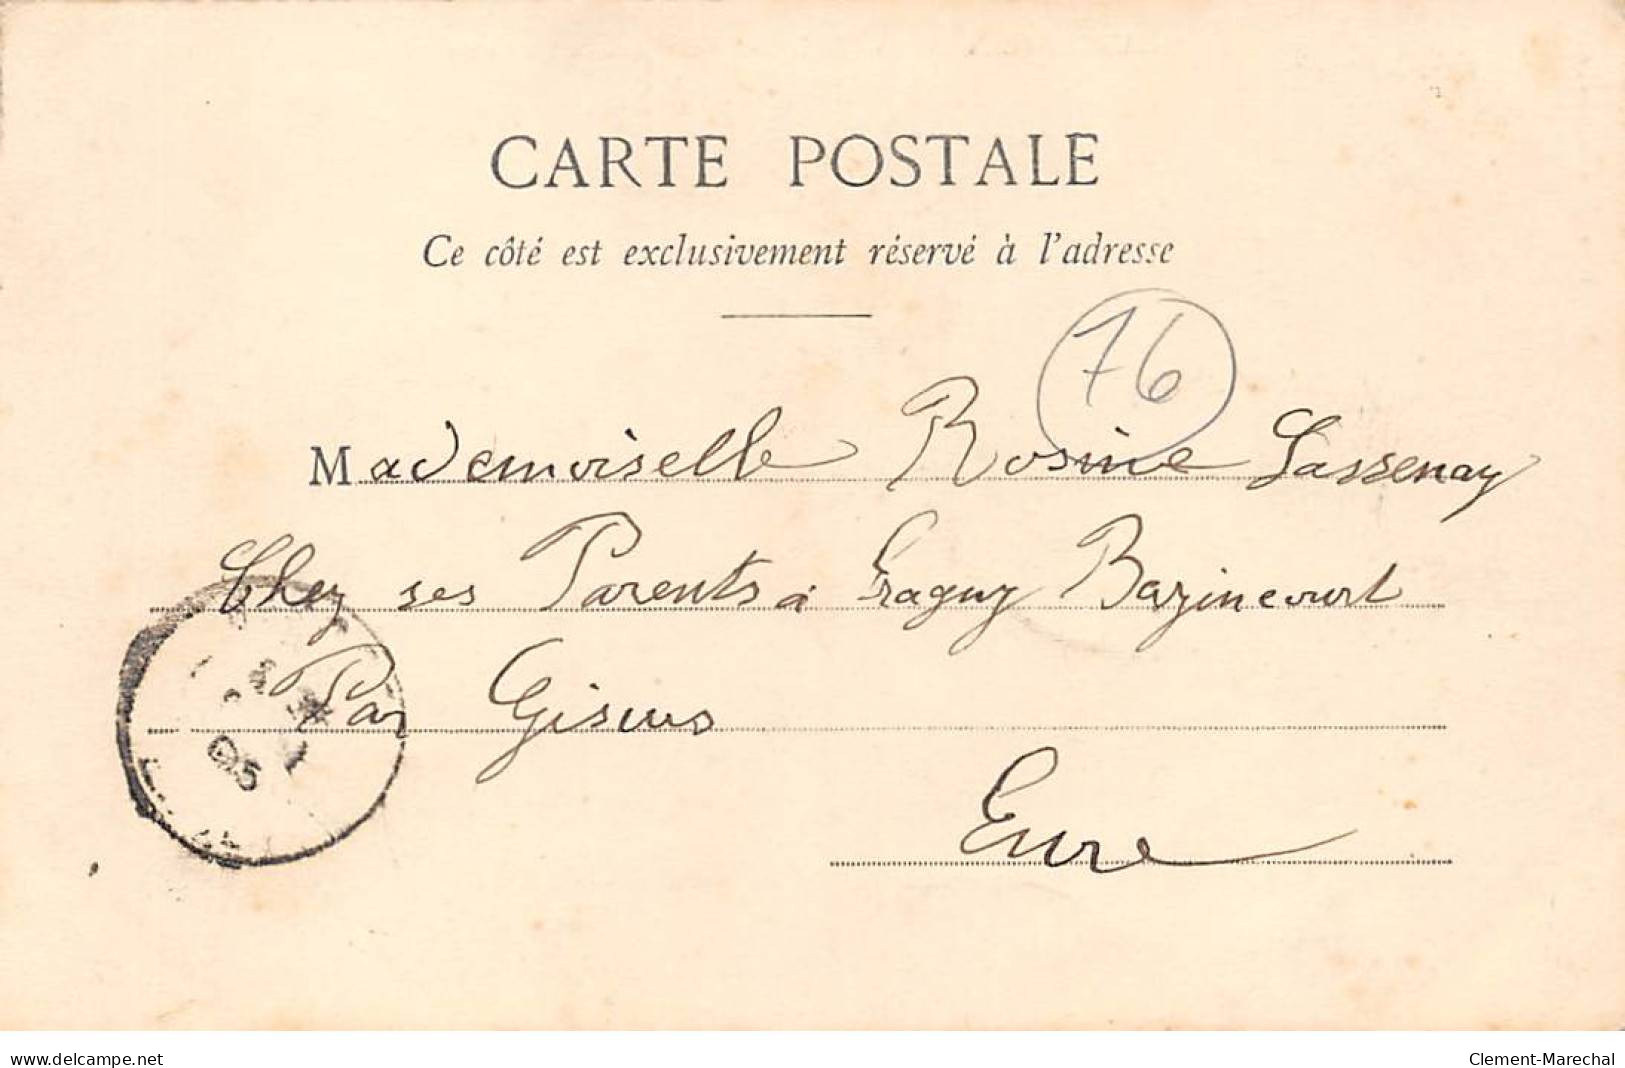 CARTE POSTALE
Ce côté est exclusivement réservé à l'adresse
76
Mademoiselle Rosine Lassenay
Chez ses Parents à Eragny Bazincourt
Par Gisors
Eure
05
www.delcampe.net
Clement-Marechal